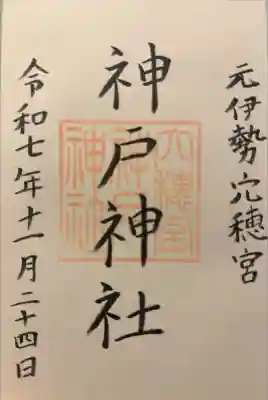 元伊勢 穴穂宮
神戸神社
令和七年十一月二十四日